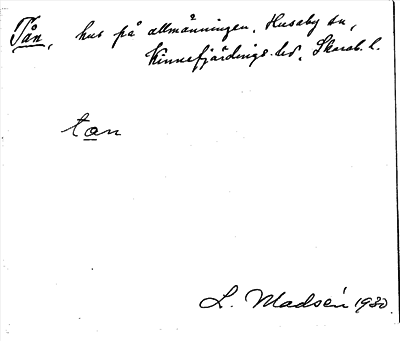 Tån, hus på allmänningen. Husaby sn,
Kinnefjärdings hd. Skarab. l.
tan
L. Madsén 1930